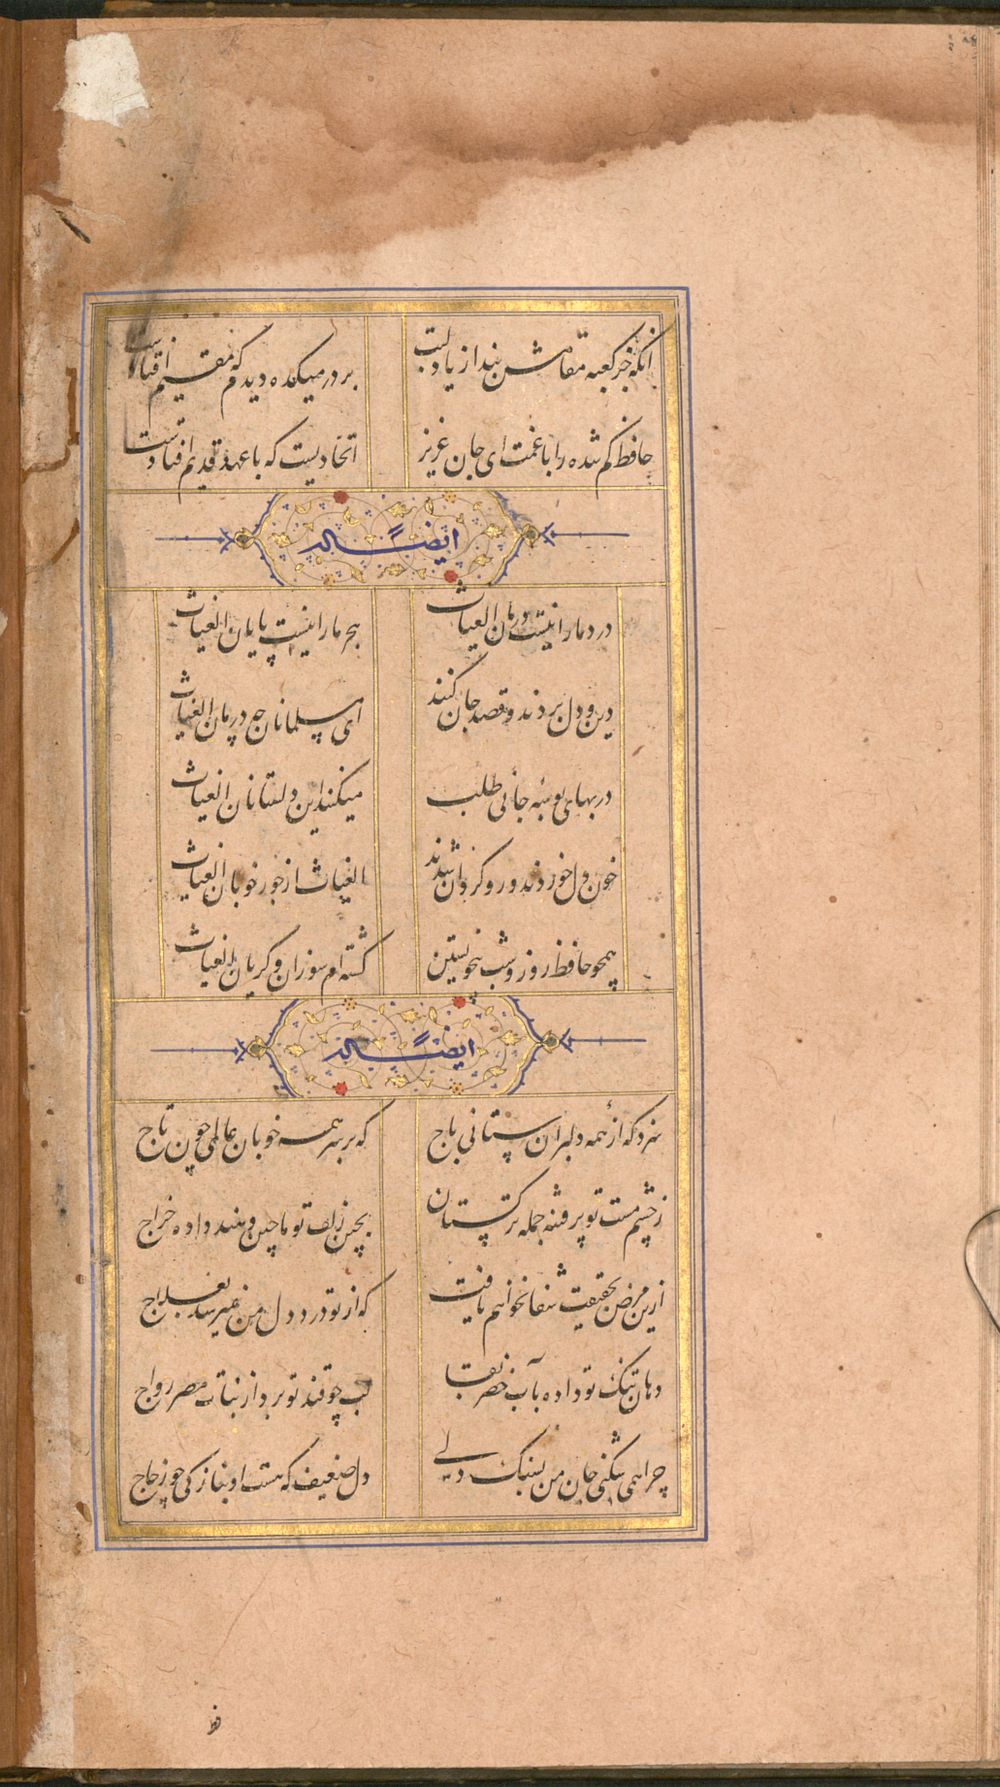 آنکه جز کعبه مقامش نبد از یاد لبت
بر در میکده دیدم که مقیم افتادست
حافظ گم شده را با غمت ای جان عزیز
اتحادیست که با عهد قدیم افتادست
ایضاً له
درد ما را نیست درمان الغیاث
هجر ما را نیست پایان الغیاث
دین و دل بردند و قصد جان کنند
ای مسلمانان چه درمان الغیاث
در بهای بوسهٔ جانی طلب
میکنند این دلستانان الغیاث
خون دل خوردند و رو گردان شدند
الغیاث از جور خوبان الغیاث
همچو حافظ روز و شب بیخویشتن
گشته‌ام سوزان و گریان الغیاث
ایضاً له
سزد که از همه دلبران ستانی باج
که بر سر همه خوبان عالمی چون تاج
ز چشم مست تو پر فتنه جمله ترکستان
بچین زلف تو ماچین و هند داده خراج
ازین مرض بحقیقت شفا نخواهم یافت
که از تو درد دل من نمیرسد بعلاج
دهان تنگ تو داده بآب خضر بقا
لب چو قند تو برد از نبات مصر رواج
چرا همی شکنی جان من بسنگ دلی
دل ضعیف که هست او بنازکی چو زجاج